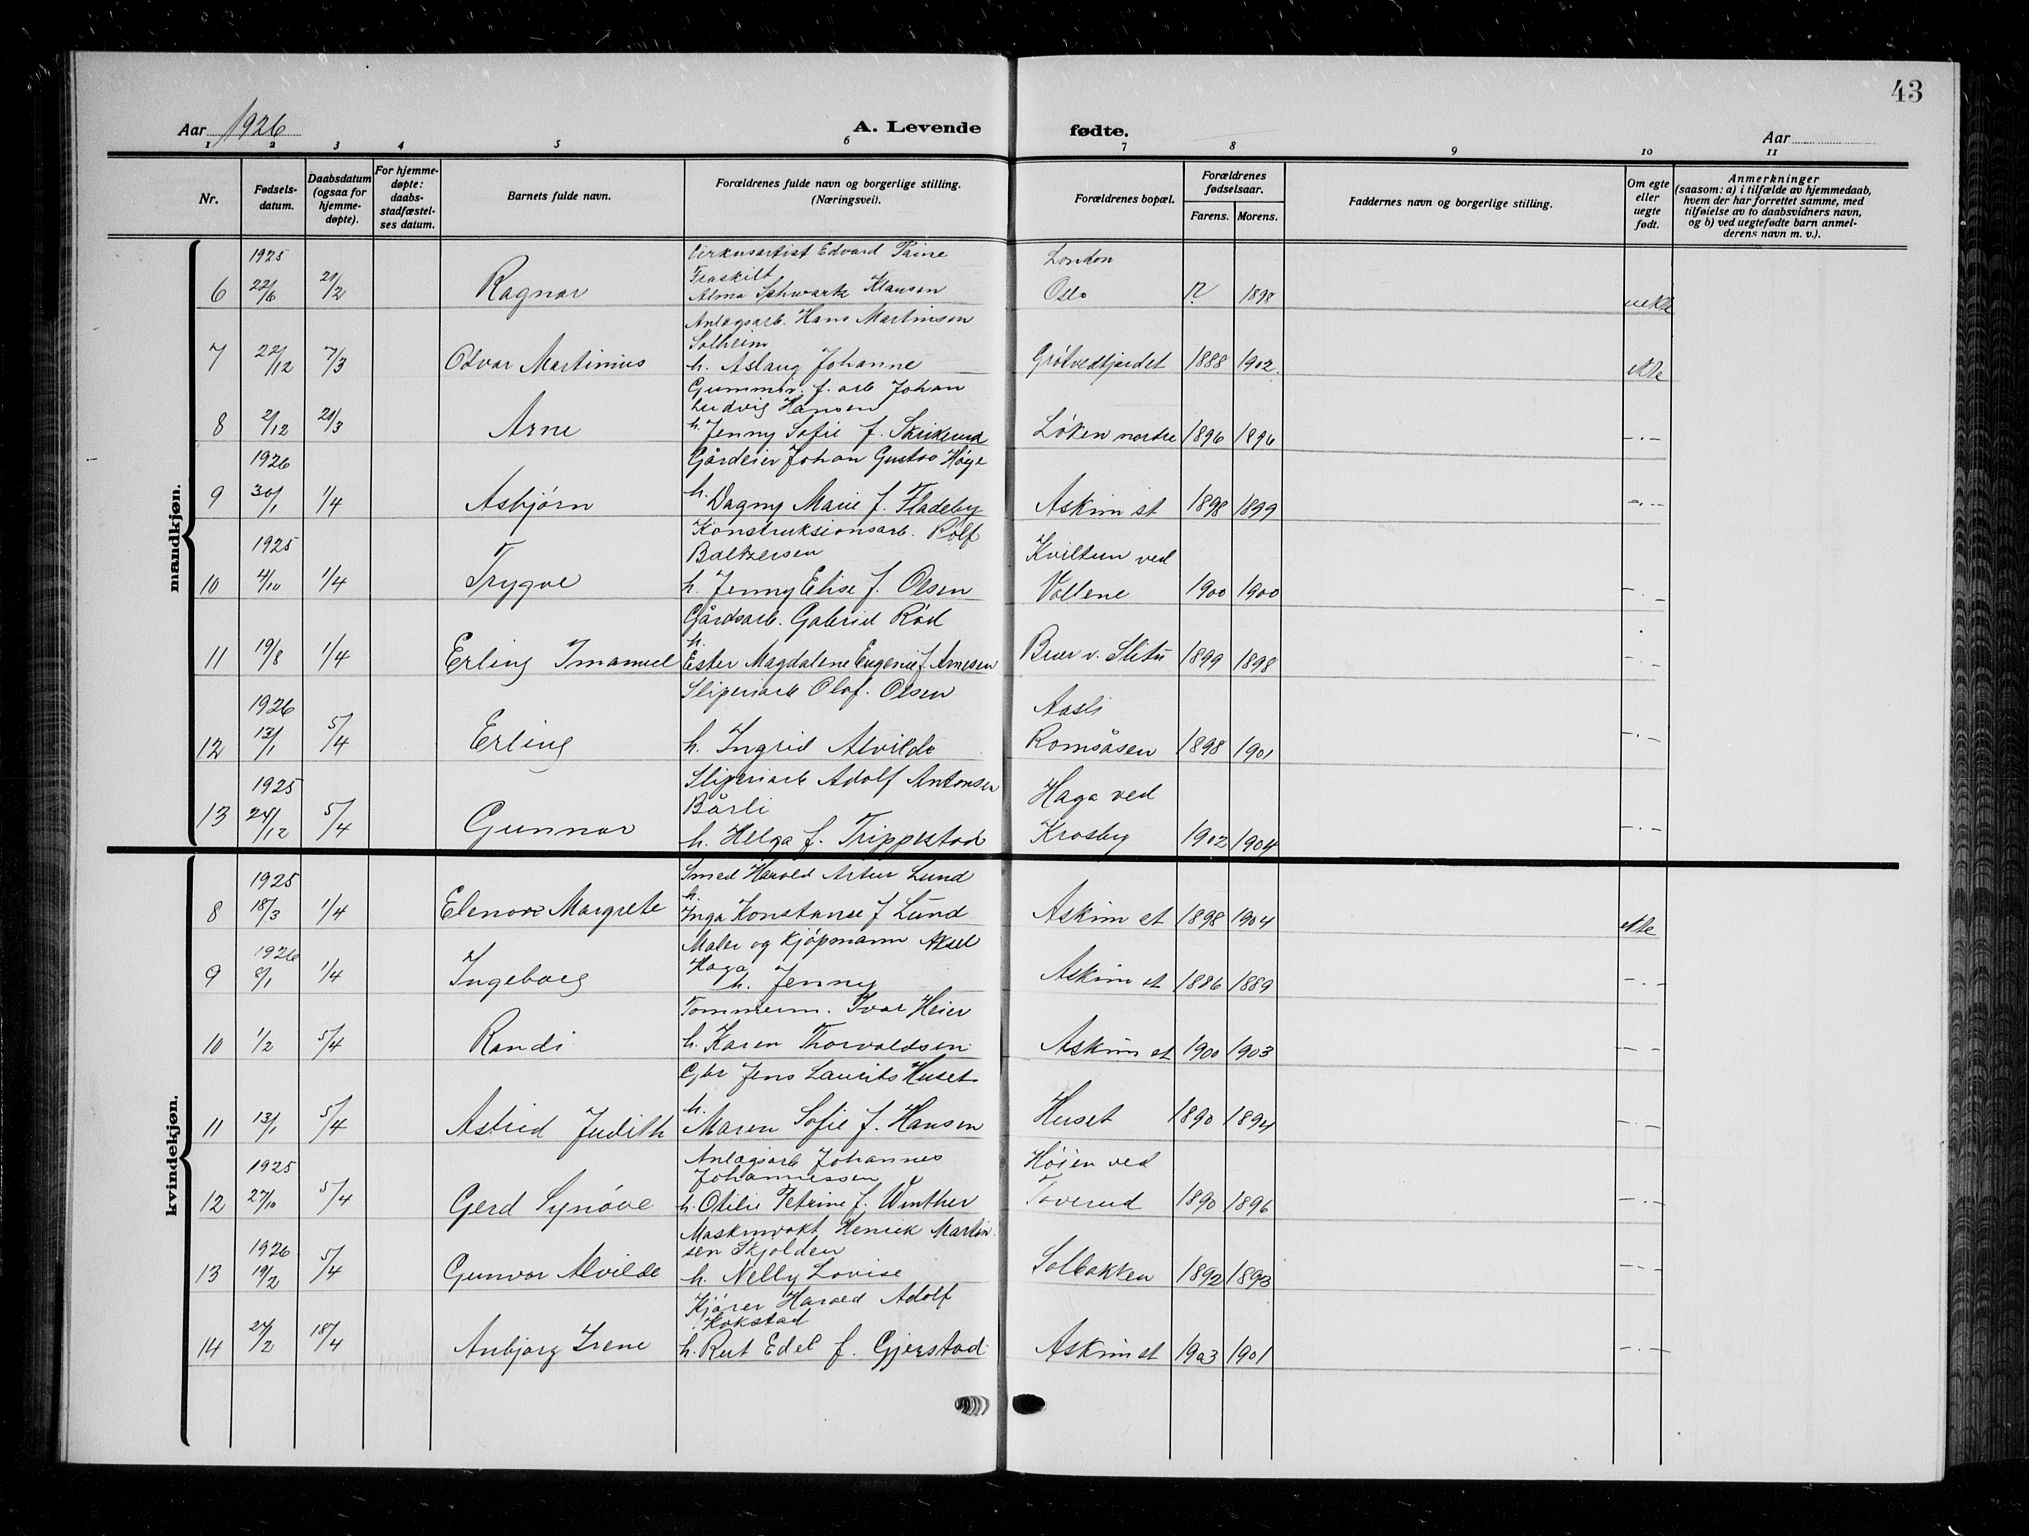 43
Aar 1926
A. Levende fødte.
Aar
1 2 3 4 5 6 7 8 9 10 11
Nr.
Fødsels-
datum.
Daabsdatum
(ogsaa for
hjemme-
døpte).
For hjemme-
døpte:
daabs-
stadfæstel-
ses datum.
Barnets fulde navn.
Forældrenes fulde navn og borgerlige stilling.
(Næringsvei).
Forældrenes bopæl.
Forældrenes
fødselsaar.
Farens. Morens.
Faddernes navn og borgerlige stilling.
Om egte
eller
uegte
født.
Anmerkninger
(saasom: a) i tilfælde av hjemmedaab,
hvem der har forrettet samme, med
tilføielse av to daabsvidners navn,
og b) ved uegtefødte barn anmel-
derens navn m. v.).
mandkjøn.
1925 Cirkusartist Edvard Paine London
Fraskilt
6 22/6 21/2 Ragnar Alma Schwartz Klausen Oslo ? 1898 uekte
Anlægsarb. Hans Martinsen
Solheim
7 22/12 7/3 Odvar Martinius h. Aslaug Johanne Grøtvedtjordet 1888 1902 ekte
Gummiv. f. arb Johan
Ludvig Hansen
8 2/12 21/3 Arne h. Jenny Sofie f. Skrikerud Løken nordre 1896 1896 - . -
1926 Gårdeier Johan Gustav Høye
9 30/1 1/4 Asbjørn h. Dagny Marie f. Fladeby Askim st 1898 1899 - . -
Konstruksionsarb. Rolf
1925 Baltzersen Kviltun ved
10 4/10 1/4 Trygve h. Jenny Elise f. Olsen Vollene 1900 1900 - . -
Gårdsarb. Gabriel Rød
h.
11 19/8 1/4 Erling Imanuel Ester Magdalene Eugenie f. Arnesen v. Slitu 1899 1898 - . -
Sliperiarb Olaf. Olsen
1926 Aasli
12 13/1 5/4 Erling h. Ingrid Alvilde Romsåsen 1898 1901 - . -
1925 Sliperiarb Adolf Antonsen Haga ved
Bårli
13 24/12 5/4 Gunnar h. Helga f. Trippestad Krosby 1902 1904 - . -
kvindekjøn.
1925 Smed Harald Artur Lund
h.
8 18/3 1/4 Elenore Margrete Inga Konstanse f Lund Askim st 1898 1904 ekte
1926 Maler og kjøpmann Aksel
Haga
9 8/1 1/4 Ingeborg h. Jenny Askim st 1886 1889 - . -
Tømmerm. Ivar Heier
10 1/2 5/4 Randi h. Karen Thorvaldsen Askim st 1900 1903 - -
Gbr Jens Laurits Huset
11 13/1 5/4 Astrid Judith h. Maren Sofie f. Hansen Huset 1890 1894 - . -
Anlægsarb Johannes
1925 Johannessen Høien ved
12 27/10 5/4 Gerd Synøve h. Otilie Petrine f. Winther Toverud 1890 1896 - . -
Maskinvakt Henrik Martin
1926 sen Skjolden
13 19/2 5/4 Gunvor Alvilde h. Nelly Lovise Solbakken 1892 1893 - . -
Kjører Harald Adolf
Kokstad
14 24/2 18/4 Anbjørg Irene h. Rut Edel f. Gjerstad Askim st 1903 1901 - . -